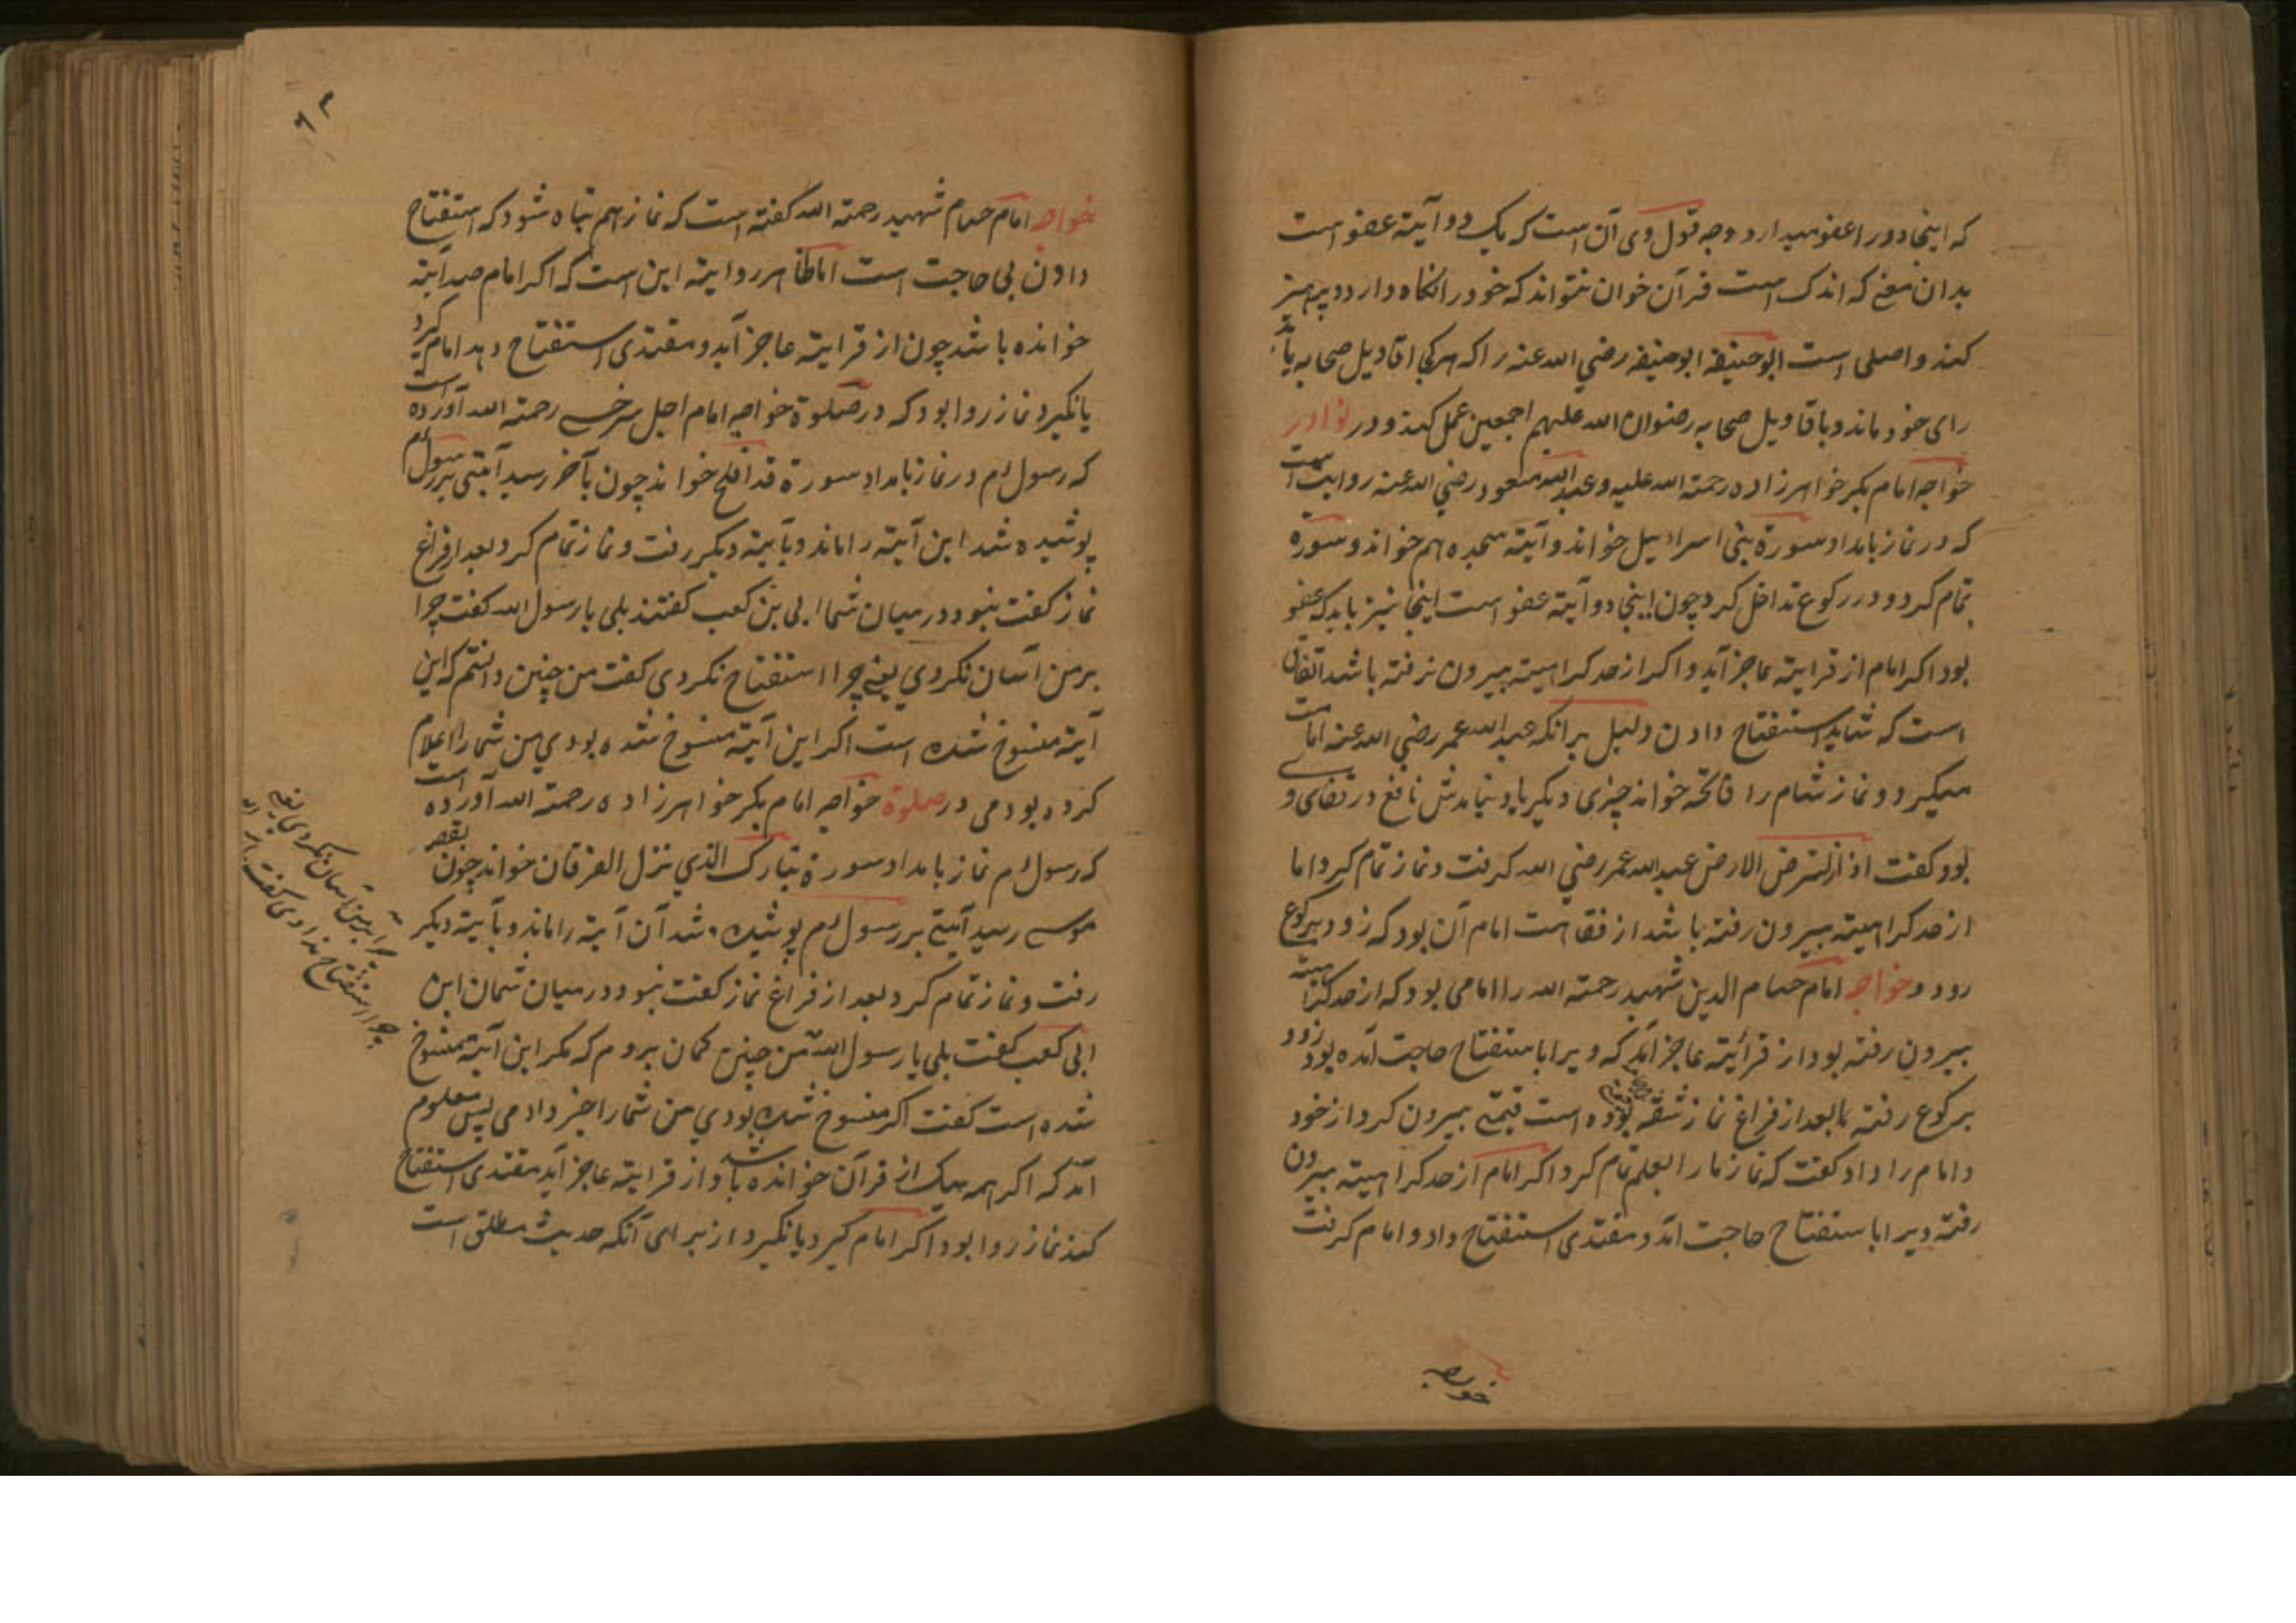 که اینجا دو را عفو میدارد و وجه قول وی آن است که یک دو آیته عفو است
بدان معنی که اندک است قرآن خوان نتواند که خود را نگاه دارد و پرهیز
کند و اصلی است ابوحنیفه ابوحنیفه رضي الله عنه را که هر کجا اقاویل صحابه یابد
رای خود ماند و باقاویل صحابه رضوان الله علیهم اجمعین عمل کند و در نوادر
خواجه امام بکر خواهرزاده رحمته الله علیه و عبدالله مسعود رضي الله عنه روایت است
که در نماز بامداد سورة بنی اسراییل خواند و آیته سجده هم خواند و سورة
تمام کرد و در رکوع تداخل کرد چون اینجا دو آیته عفو است اینجا نیز باید که عفو
بود اکر امام از قرایته عاجز آید و اکر از حد کراهیته بیرون نرفته باشد اتفاق
است که شاید استفتاح دادن دلیل برانکه عبدالله عمر رضي الله عنه امامت
میکیرد و نماز شام را فاتحه خواند چیزی دیکر یاد نیامدش نافع در قفای وی
بود کفت اذا زلزلت الارض عبدالله عمر رضي الله کرفت و نماز تمام کرد اما
از حد کراهیته بیرون رفته باشد از فقاهت امام آن بود که زود برکوع
رود و خواجه امام حسام الدین شهید رحمته الله را امامی بود که از حد کراهیته
بیرون رفته بود از قرائته عاجز آمد که ویرا باستفتاح حاجت آمده بود زود
برکوع رفته بعد از فراغ نماز شقه بوده است قیمتی بیرون کرد از خود
و امام را داد کفت که نماز ما را بعلم تمام کرد اکر امام از حد کراهیته بیرون
رفته ویرا باستفتاح حاجت آمد و مقتدی استفتاح داد و امام کرفت
خواجه
۶۳
خواجه امام حسام شهید رحمته الله کفته است که نماز هم تباه شود که استفتاح
دادن بی حاجت است اما ظاهر روایته این است که اکر امام صد آیته
خوانده باشد چون از قرایته عاجز آید و مقتدی استفتاح دهد امام کیرد
یا نکیرد نماز روا بود که در صلوة خواجه امام اجل سرخسی رحمته الله آورده است
که رسول م در نماز بامداد سورة قد افلح خواند چون بآخر رسید آیتی بر رسول م
پوشیده شد این آیته را ماند و بآیته دیکر رفت و نماز تمام کرد بعد از فراغ
نماز کفت نبود در میان شما ابی بن کعب کفتند بلی یا رسول الله کفت چرا
بر من آسان نکردي یعني چرا استفتاح نکردی کفت من چنین دانستم که این
آیته منسوخ شده است اکر این آیته منسوخ شده بودي من شما را اعلام
کرده بودمی در صلوة خواجه امام بکر خواهرزاده رحمته الله آورده است
که رسول م نماز بامداد سورة تبارک الذي نزل الفرقان خواند چون بقصه
موسی رسید آیتی بر رسول م پوشیده شد آن آیته را ماند و بآیته دیکر
رفت و نماز تمام کرد بعد از فراغ نماز کفت نبود در میان شمان ابن
ابی کعب کفت بلی یا رسول الله من چنین کمان بردم که مکر این آیته منسوخ
شده است کفت اکر منسوخ شده بودي من شما را خبر دادمی پس معلوم
آمد که اکر همه یک از قرآن خوانده باشد و از قرایته عاجز آید مقتدی استفتاح
کند نماز روا بود اکر امام کیرد یا نکیرد از برای آنکه حدیث مطلق است
چرا بر من آسان نکردی یعنی
چرا استفتاح ندادی کفت